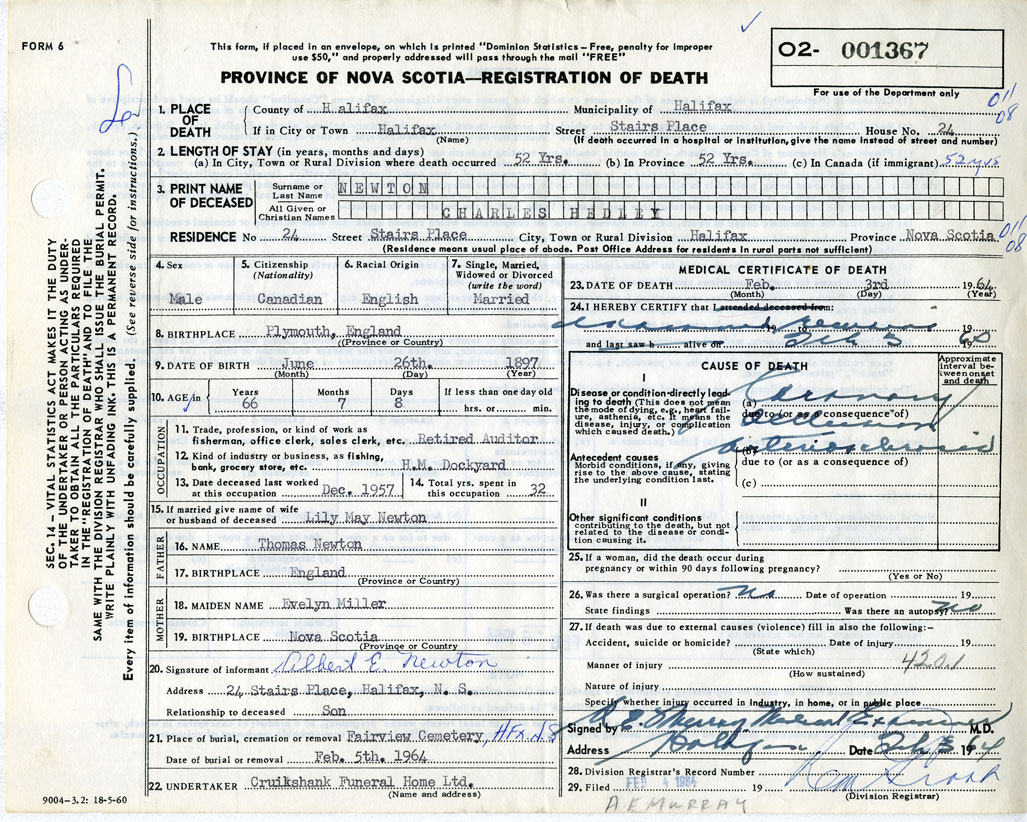 FORM 6
This form, if placed in an envelope, on which is printed "Dominion Statistics – Free, penalty for improper
use $50," and properly addressed will pass through the mail "FREE"
PROVINCE OF NOVA SCOTIA—REGISTRATION OF DEATH
O2- 001367
For use of the Department only
011
08
1. PLACE OF DEATH
County of Halifax Municipality of Halifax
If in City or Town Halifax Street Stairs Place House No. 24
(Name) (If death occurred in a hospital or institution, give the name instead of street and number)
2. LENGTH OF STAY (in years, months and days)
(a) In City, Town or Rural Division where death occurred 52 Yrs. (b) In Province 52 Yrs. (c) In Canada (if immigrant) 52 yrs
3. PRINT NAME OF DECEASED
Surname or Last Name NEWTON
All Given or Christian Names CHARLES HEDLEY
RESIDENCE No 24 Street Stairs Place City, Town or Rural Division Halifax Province Nova Scotia
011
08
(Residence means usual place of abode. Post Office Address for residents in rural parts not sufficient)
4. Sex
Male
5. Citizenship
(Nationality)
Canadian
6. Racial Origin
English
7. Single, Married,
Widowed or Divorced
(write the word)
Married
8. BIRTHPLACE Plymouth, England
(Province or Country)
9. DATE OF BIRTH June 26th. 1897
(Month) (Day) (Year)
10. AGE in
Years Months Days If less than one day
66 7 8 hrs. or min.
OCCUPATION
11. Trade, profession, or kind of work as
fisherman, office clerk, sales clerk, etc. Retired Auditor
12. Kind of industry or business, as fishing,
bank, grocery store, etc. H.M. Dockyard
13. Date deceased last worked
at this occupation Dec. 1957
14. Total yrs. spent in
this occupation 32
15. If married give name of wife
or husband of deceased Lily May Newton
FATHER
16. NAME Thomas Newton
17. BIRTHPLACE England
(Province or Country)
MOTHER
18. MAIDEN NAME Evelyn Miller
19. BIRTHPLACE Nova Scotia
(Province or Country)
20. Signature of informant Albert E. Newton
Address 24 Stairs Place, Halifax, N. S.
Relationship to deceased Son
21. Place of burial, cremation or removal Fairview Cemetery, HFX NS
Date of burial or removal Feb. 5th. 1964
22. UNDERTAKER Cruikshank Funeral Home Ltd.
(Name and address)
9004–3.2: 18-5-60
MEDICAL CERTIFICATE OF DEATH
23. DATE OF DEATH Feb. 3rd 1964
(Month) (Day) (Year)
24. I HEREBY CERTIFY that I attended deceased from:
19 to 19
and last saw h alive on Feb 3 19
CAUSE OF DEATH
Approximate interval between onset and death
I
Disease or condition directly leading to death (This does not mean
the mode of dying, e.g., heart failure, asthenia, etc. It means the
disease, injury, or complication
which caused death.)
(a) Coronary
due to (or as a consequence of)
Occlusion
(b) Arteriosclerosis
Antecedent causes
Morbid conditions, if any, giving
rise to the above cause, stating
the underlying condition last.
due to (or as a consequence of)
(c)
II
Other significant conditions
contributing to the death, but not
related to the disease or condition causing it.
25. If a woman, did the death occur during
pregnancy or within 90 days following pregnancy?
(Yes or No)
26. Was there a surgical operation? No Date of operation 19
State findings Was there an autopsy? No
27. If death was due to external causes (violence) fill in also the following:–
Accident, suicide or homicide? Date of injury 19
(State which)
Manner of injury 420.1
(How sustained)
Nature of injury
Specify whether injury occurred in industry, in home, or in public place
Signed by A E Murray Medical Examiner M.D.
Address Halifax Date Feb 3 1964
28. Division Registrar's Record Number
29. Filed FEB 4 1964 19
(Division Registrar)
A.E MURRAY
SEC. 14 – VITAL STATISTICS ACT MAKES IT THE DUTY
OF THE UNDERTAKER OR PERSON ACTING AS UNDERTAKER TO OBTAIN ALL THE PARTICULARS REQUIRED
IN THE "REGISTRATION OF DEATH" AND TO FILE THE
SAME WITH THE DIVISION REGISTRAR WHO SHALL ISSUE THE BURIAL PERMIT.
WRITE PLAINLY WITH UNFADING INK. THIS IS A PERMANENT RECORD.
Every item of information should be carefully supplied. (See reverse side for instructions.)